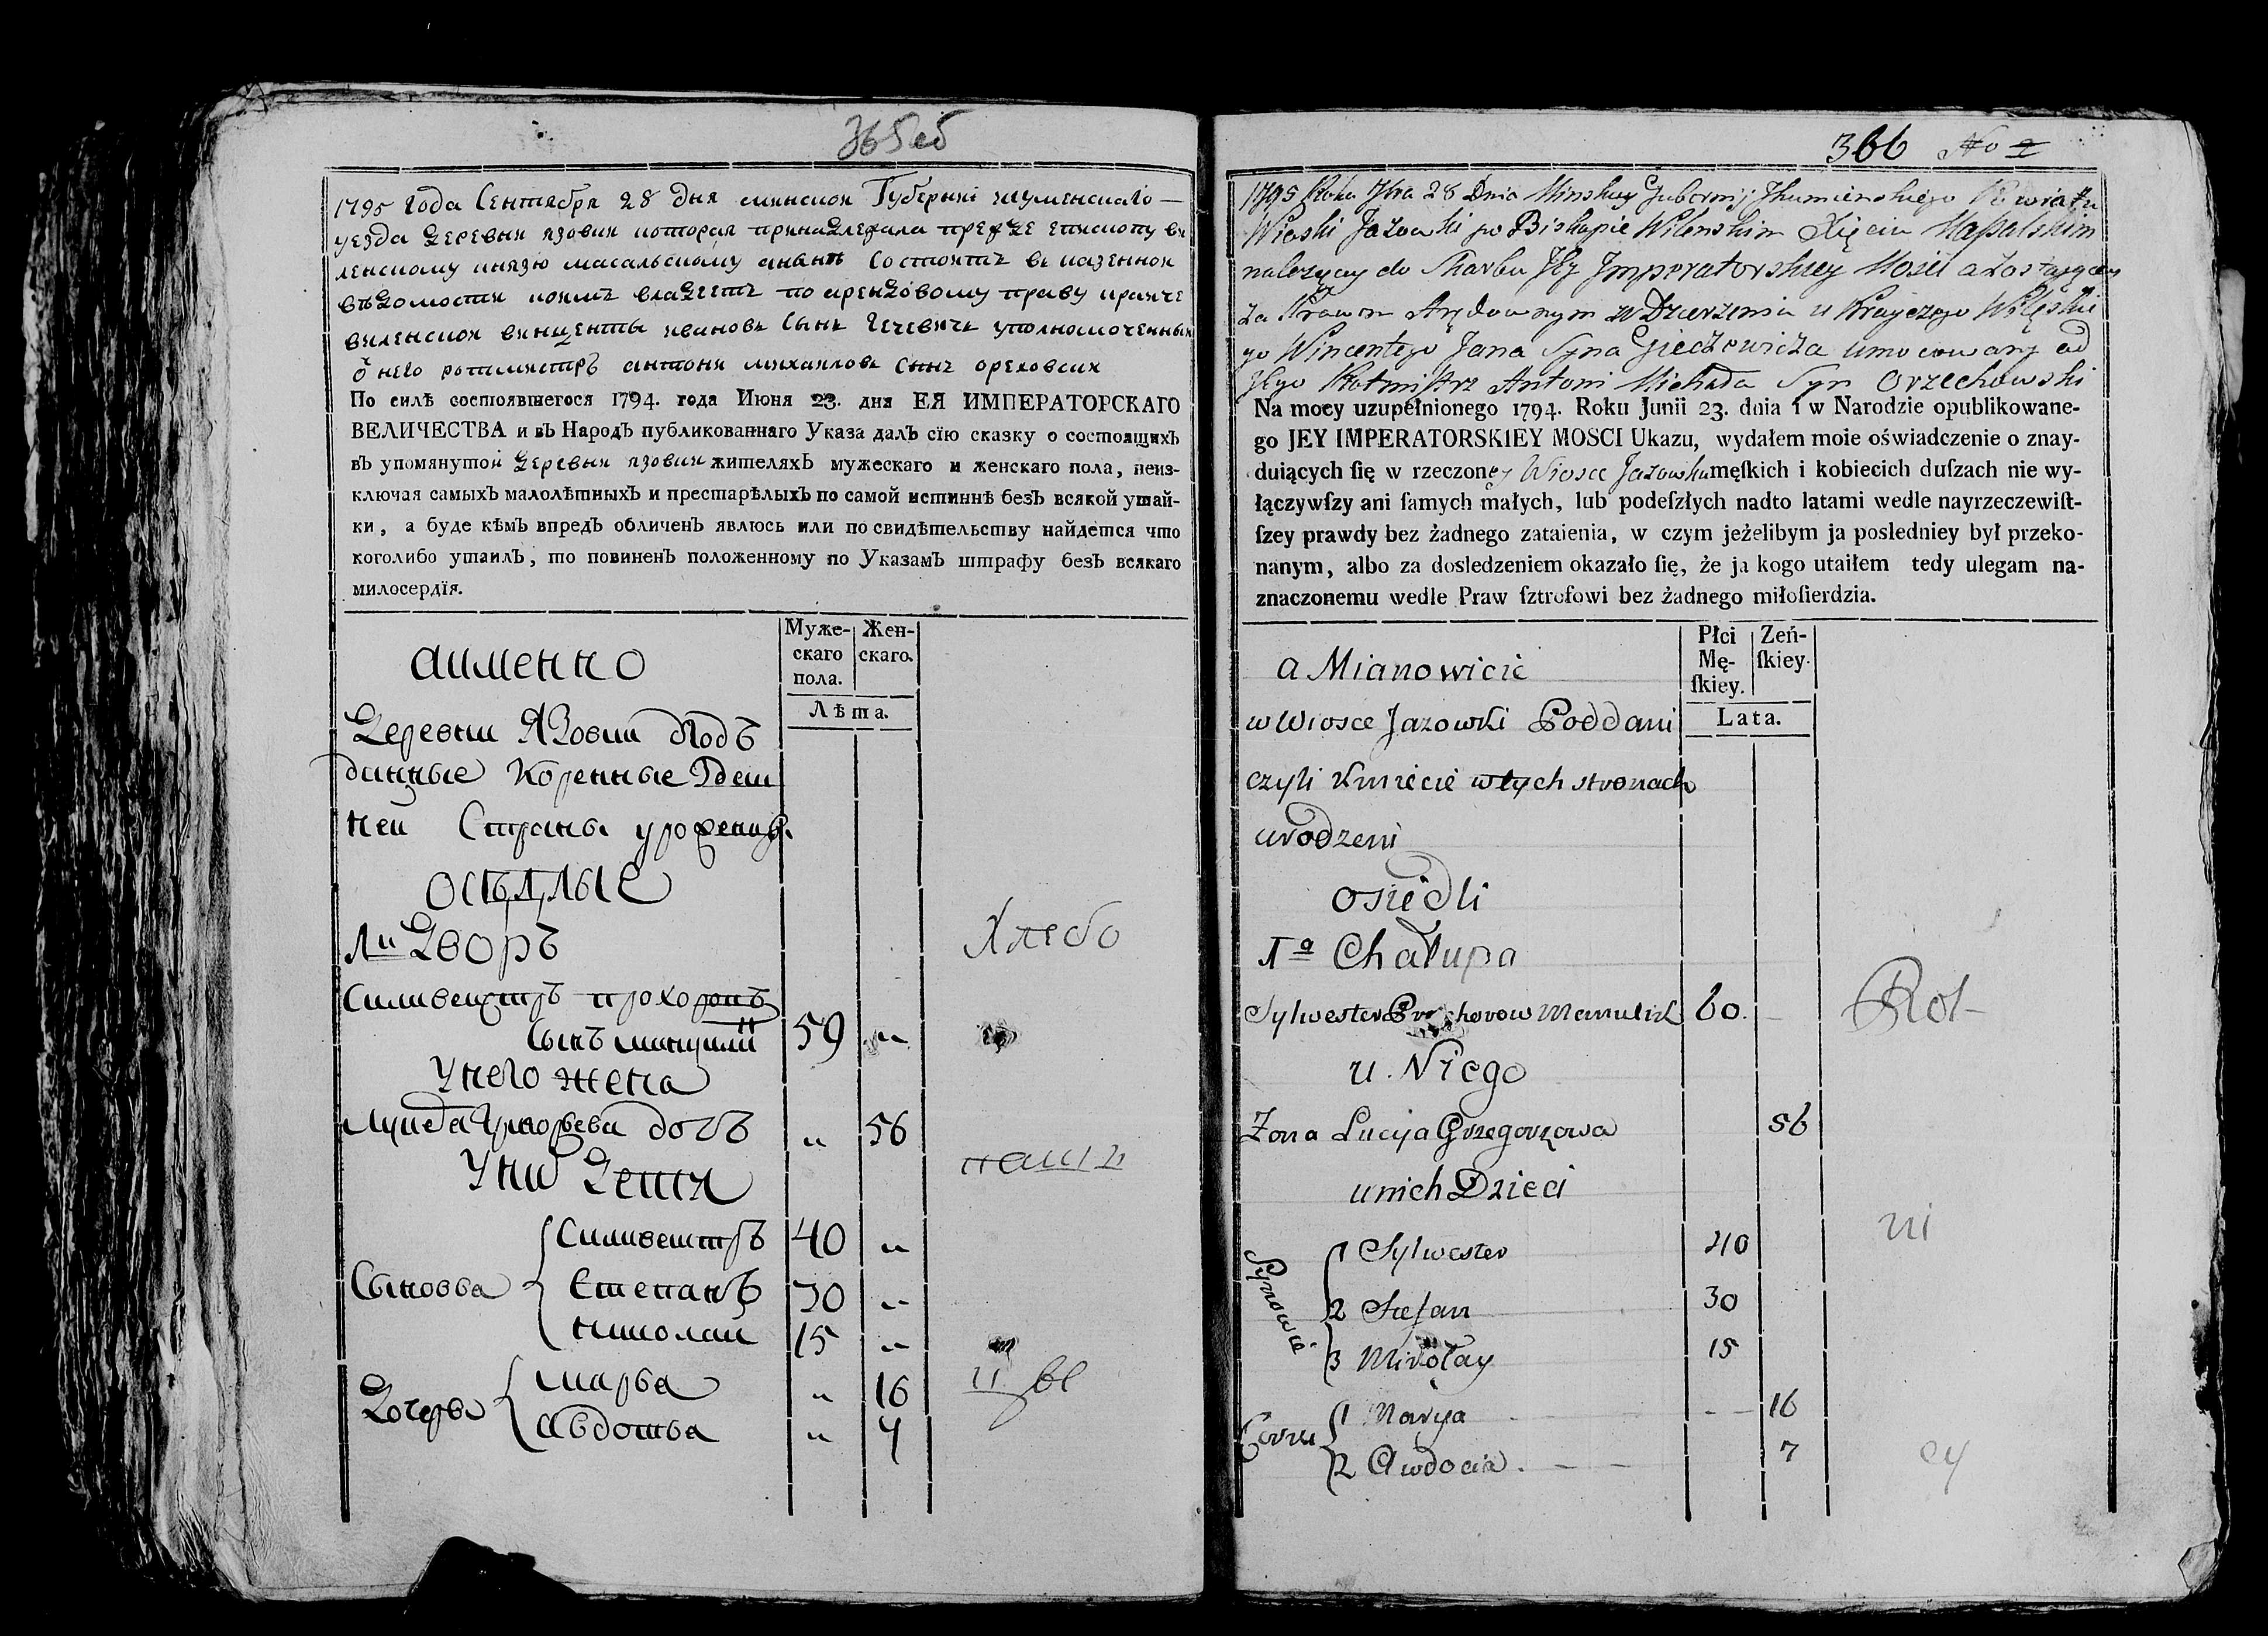 365 об
1795 года Сентября 28 дня минской Губерніи игуменскаго
уезда деревни язовки которая принадлежала прежде епископу ви
ленскому князю масальскому аныне состоитъ въ казенной
въдомости коимъ владеетъ по арендовому праву крайче
виленской винценты иванов сынъ Гечевичъ уполномоченный
о него ротмистръ антони михаилов сынъ ореховски
По силѣ состоявшегося 1794. года Июня 23. дня ЕЯ ИМПЕРАТОРСКАГО
ВЕЛИЧЕСТВА и въ Народъ публикованнаго Указа далъ сїю сказку о состоящихъ
въ упомянутой деревни язовки жителяхъ мужескаго и женскаго пола, неиз-
ключая самыхъ малолѣтныхъ и престарѣлыхъ по самой истиннѣ безъ всякой утай-
ки, а буде кѣмъ впредъ обличенъ явлюсь или по свидѣтельству найдется что
коголибо утаилъ, то повиненъ положенному по Указамъ штрафу безъ всякаго
милосердїя.
аименно
Муже-
скаго
пола.
Жен-
скаго.
Лѣта.
Деревни Язовки Подъ
данные Коренные Здеш
ней Страны урожения
осѣдлые
1й Дворъ
Хлебо
Силивестръ прохоровъ
Сынъ 59 "
Унего жена
Григорьева дочь " 56
Уних Дети
паш
Сыновья
Силивестръ 40 "
Степанъ 30 "
николай 15 "
Дочерьи
марья " 16
Авдотья " 7
366 No 2
1795 Roku 7bra 28 Dnia Minskiey Gubernij Jhumienskiego Powiatu
Wioski Jazowki po Biskupie Wilenskim Xięciu Massalskim
należący do Skarbu Jey Jmperatorskiey Mości a zostaiący
za Prawem Arędownym w Dzierzeniu u Krayczego Wileńskie
go Wincentego Jana Syna Gieczewicza umocowany od
Jego Rotmistrz Antoni Michała Syn Orzechowski
Na mocy uzupełnionego 1794. Roku Junii 23. dnia i w Narodzie opublikowane-
go JEY IMPERATORSKIEY MOSCI Ukazu, wydałem moie oświadczenie o znay-
duiących ſię w rzeczoney Wiosce Jazowki męſkich i kobiecich duſzach nie wy-
łączywſzy ani ſamych małych, lub podeſzłych nadto latami wedle nayrzeczewiſt-
ſzey prawdy bez żadnego zataienia, w czym jeżelibym ja posledniey był przeko-
nanym, albo za dosledzeniem okazało ſię, że ja kogo utaiłem tedy ulegam na-
znaczonemu wedle Praw ſztrofowi bez żadnego miłoſierdzia.
a Mianowicie
Płci
Mę-
ſkiey.
Zeń-
ſkiey.
Lata.
w Wiosce Jazowki Poddani
czyli Kmiecie wtych stronach
urodzeni
osiedli
1a Chałupa
Sylwester Prochorow 60.
Rol-
u Niego
Zona Lucya Grzegorzowa 56
unich Dzieci
ni
Synowie
1 Sylwester 40
2 Stefan 30
3 Mikołay 15
Corki
1 Marya 16
2 Awdocia 7
cy